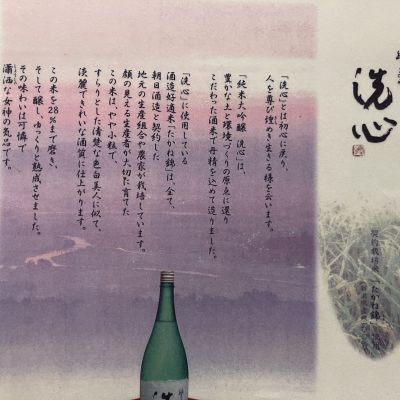 洗心
「洗心」とは初心に戻り、
人を尊び煌めき生きる様を云います。
「純米大吟醸 洗心」は、
豊かな土と環境づくりの原点に還り
こだわった酒米で丹精を込めて造りました。
「洗心」に使用している
酒造好適米「たかね錦」は、全て、
朝日酒造と契約した
地元の生産組合や農家が栽培しています。
顔の見える生産者が大切に育てた
この米は、やや小粒で、
すらりとした清楚な色白美人に似て、
淡麗できれいな酒質に仕上がります。
この米を28%まで磨き、
そして醸し、ゆっくりと熟成させました。
その味わいは可憐で
瀟洒な女神の気品です。
契約栽培米「たかね錦」
洗